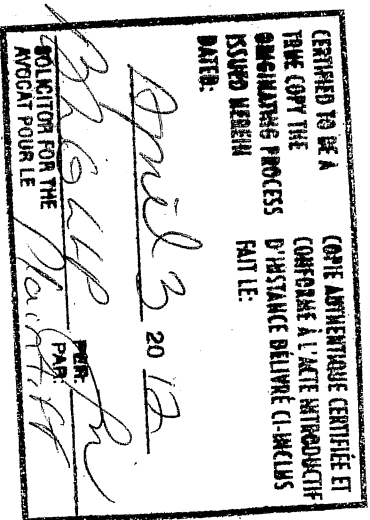 CERTIFIED TO BE A
TRUE COPY THE
ORIGINATING PROCESS
ISSUED HEREIN
DATED:
COPIE AUTHENTIQUE CERTIFIÉE ET
CONFORME À L'ACTE INTRODUCTIF
D'INSTANCE DÉLIVRÉ CI-INCLUS
FAIT LE:
April 3 20 12
BLG LLP PER:
PAR:
SOLICITOR FOR THE Plaintiff
AVOCAT POUR LE